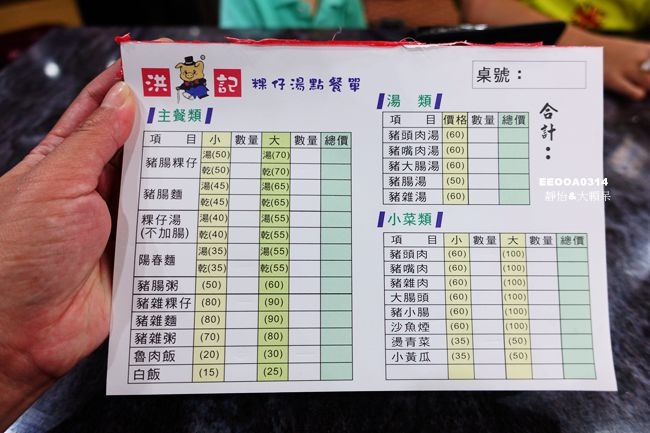 洪記 粿仔湯點餐單
桌號：
合計：
主餐類
項 目 小 數量 大 數量 總價
豬腸粿仔 湯(50) 湯(70)
乾(50) 乾(70)
豬腸麵 湯(45) 湯(65)
乾(45) 乾(65)
粿仔湯(不加腸) 湯(40) 湯(55)
乾(40) 乾(55)
陽春麵 湯(35) 湯(55)
乾(35) 乾(55)
豬腸粥 (50) (60)
豬雜粿仔 (80) (90)
豬雜麵 (80) (90)
豬雜粥 (70) (80)
魯肉飯 (20) (30)
白飯 (15) (25)
湯 類
項 目 價格 數量 總價
豬頭肉湯 (60)
豬嘴肉湯 (60)
豬大腸湯 (60)
豬腸湯 (50)
豬雜湯 (60)
小菜類
項 目 小 數量 大 數量 總價
豬頭肉 (60) (100)
豬嘴肉 (60) (100)
豬雜肉 (60) (100)
大腸頭 (60) (100)
豬小腸 (60) (100)
沙魚煙 (60) (100)
燙青菜 (35) (50)
小黃瓜 (35) (50)
EEOOA0314
靜怡&大顆呆